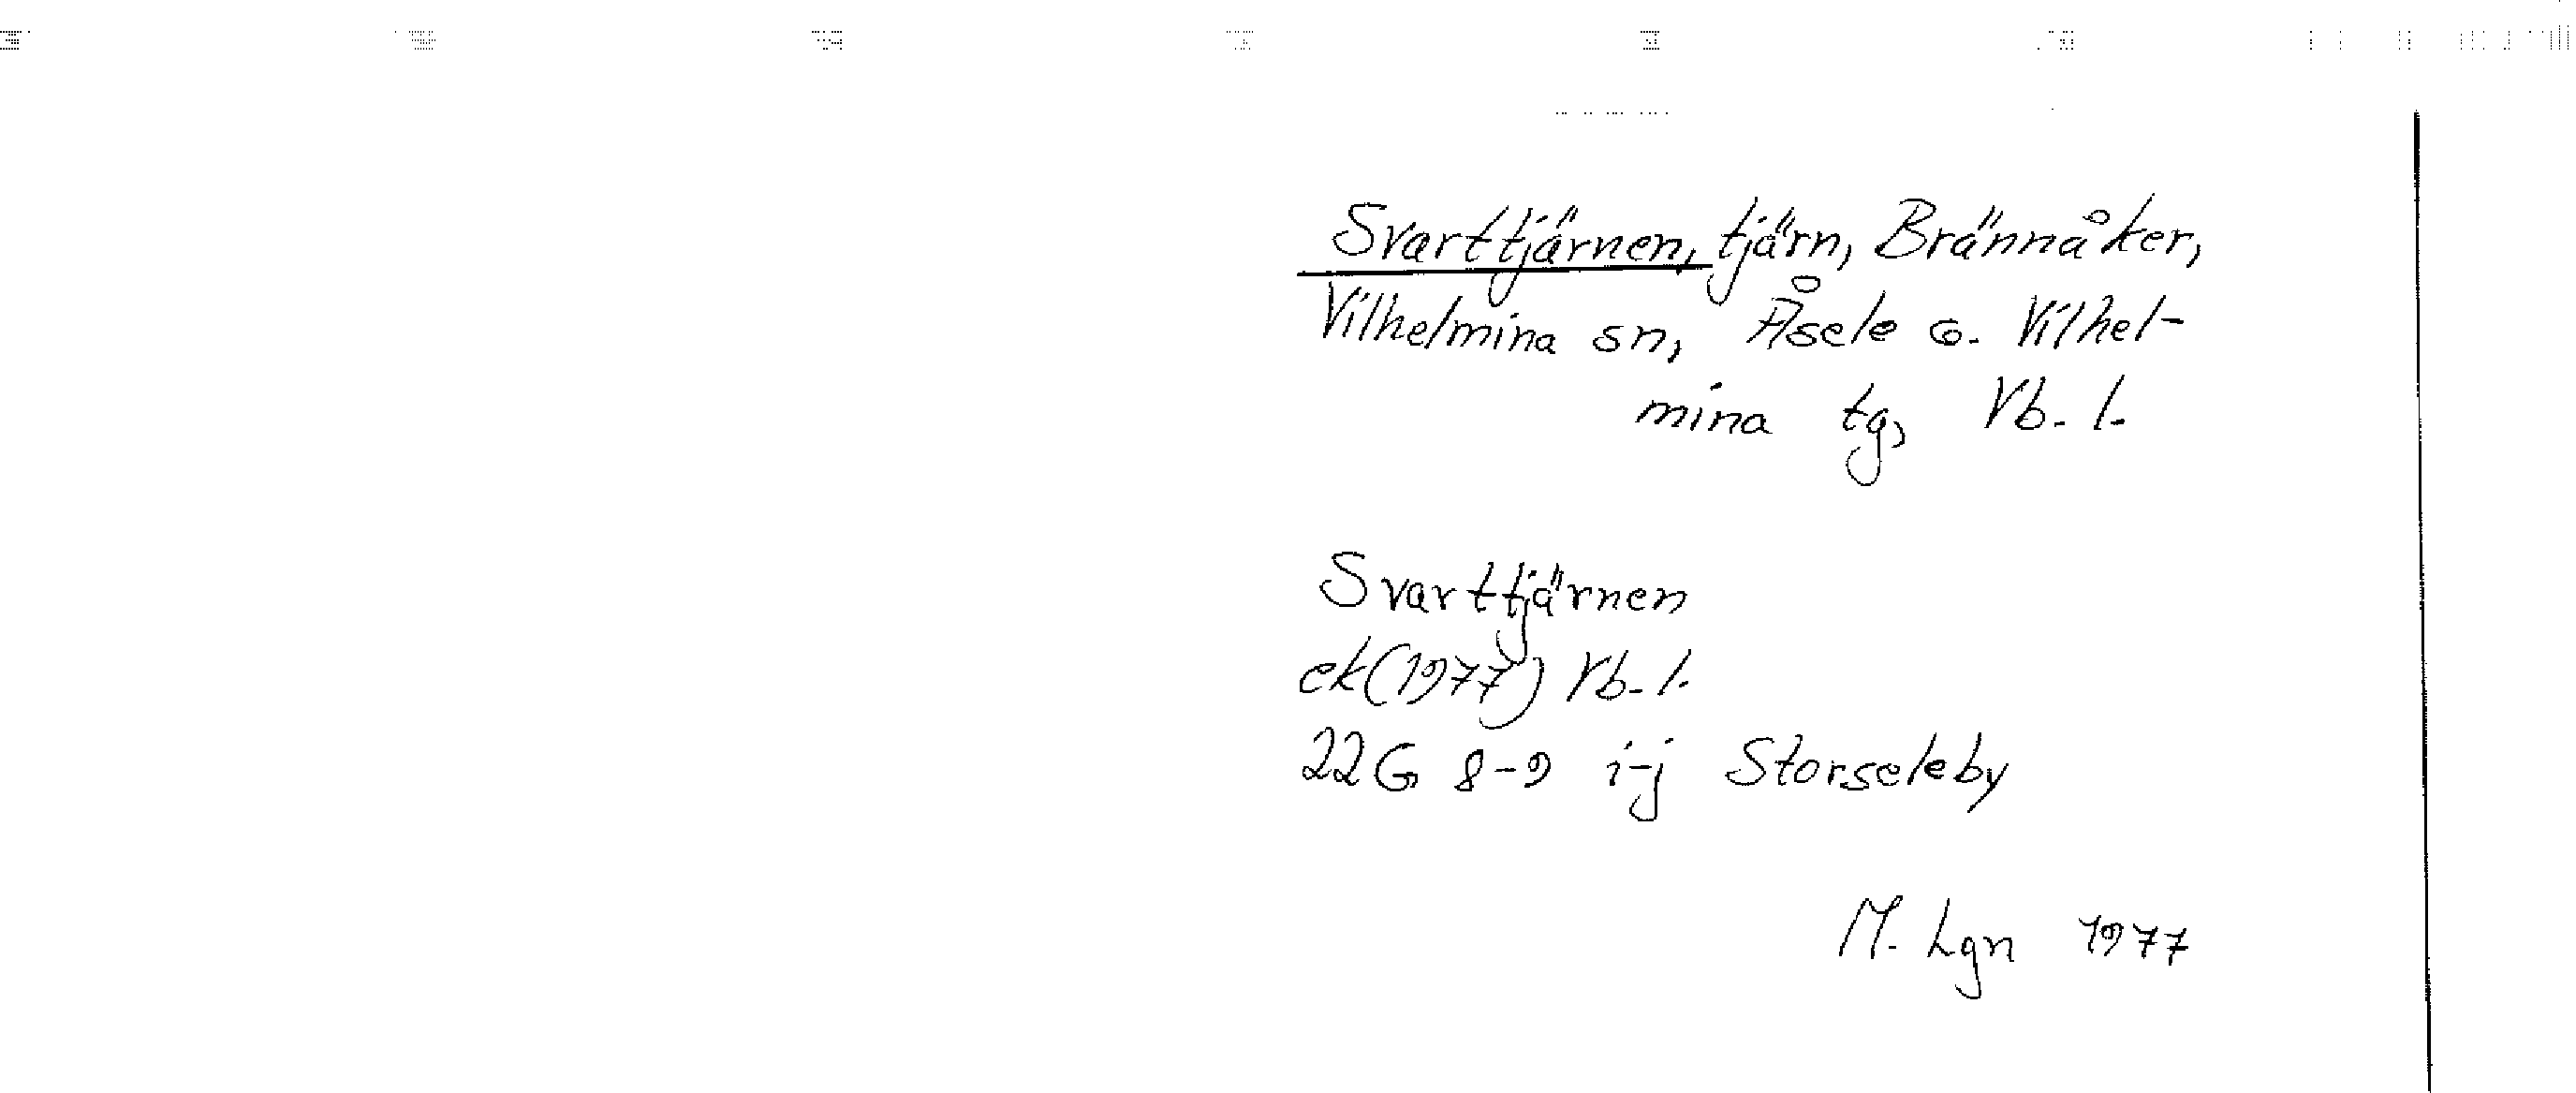 Svarttjärnen, tjärn, Brännåker,
Vilhelmina sn, Åsele o. Vilhel-
mina tg, Vb. l.
Svarttjärnen
ek(1977) Vb. l.
22G 8-9 i-j Storseleby
M. Lgn 1977